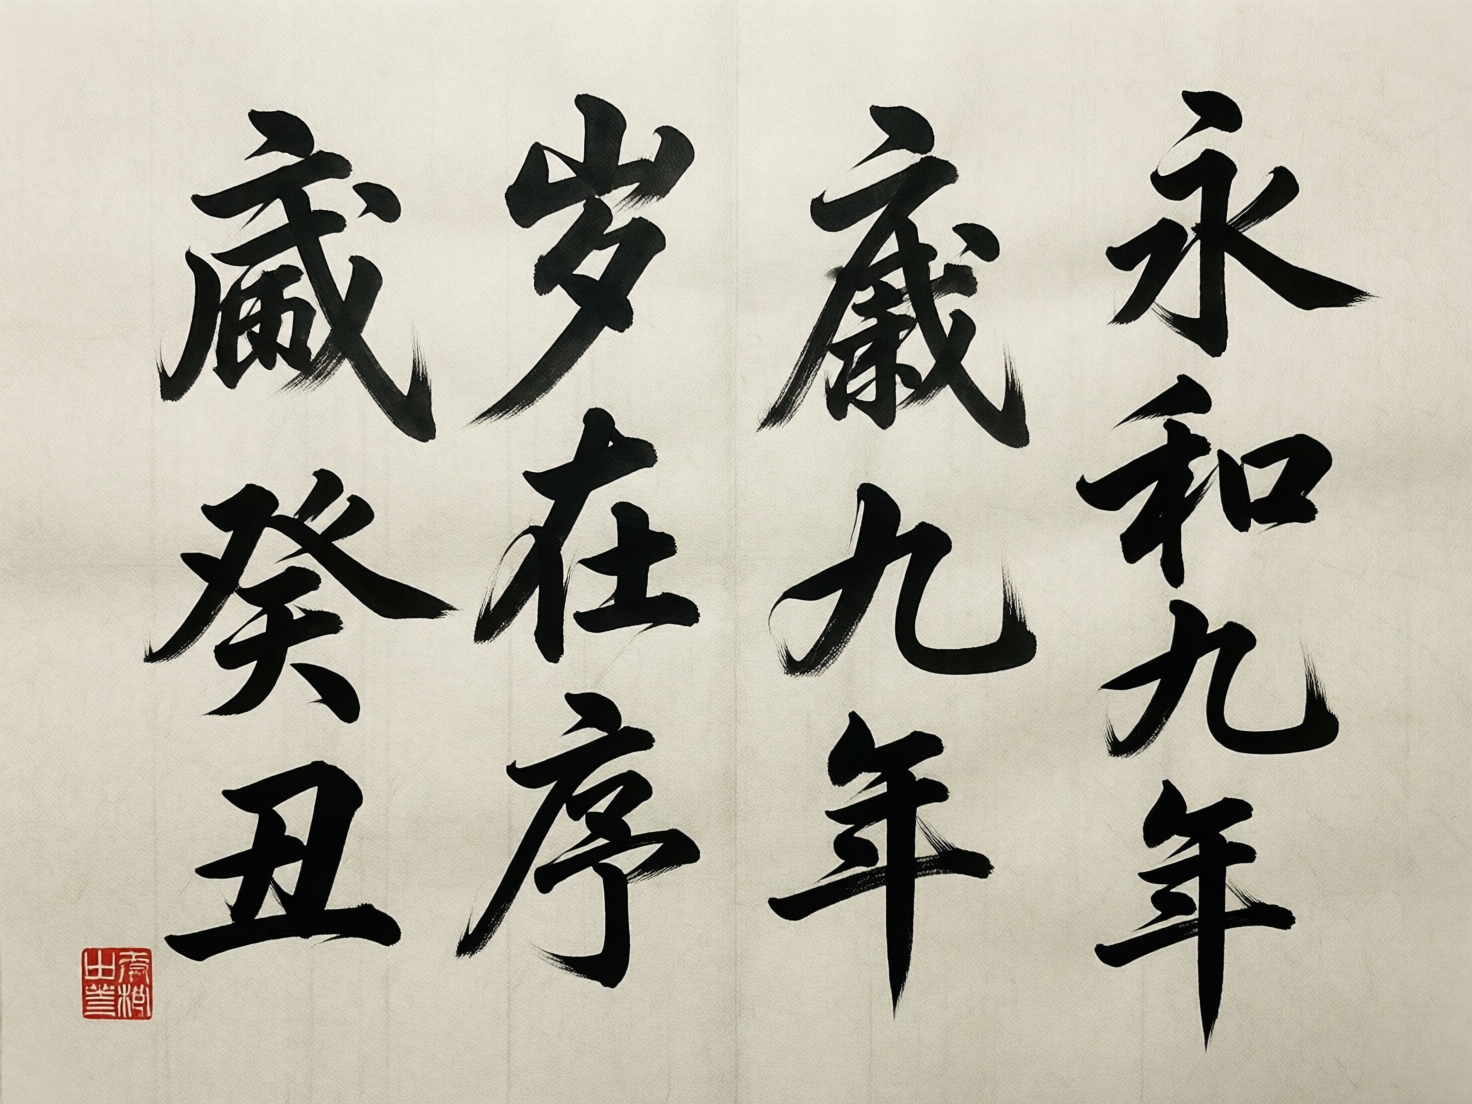 永和九年
九年
岁在序
癸丑